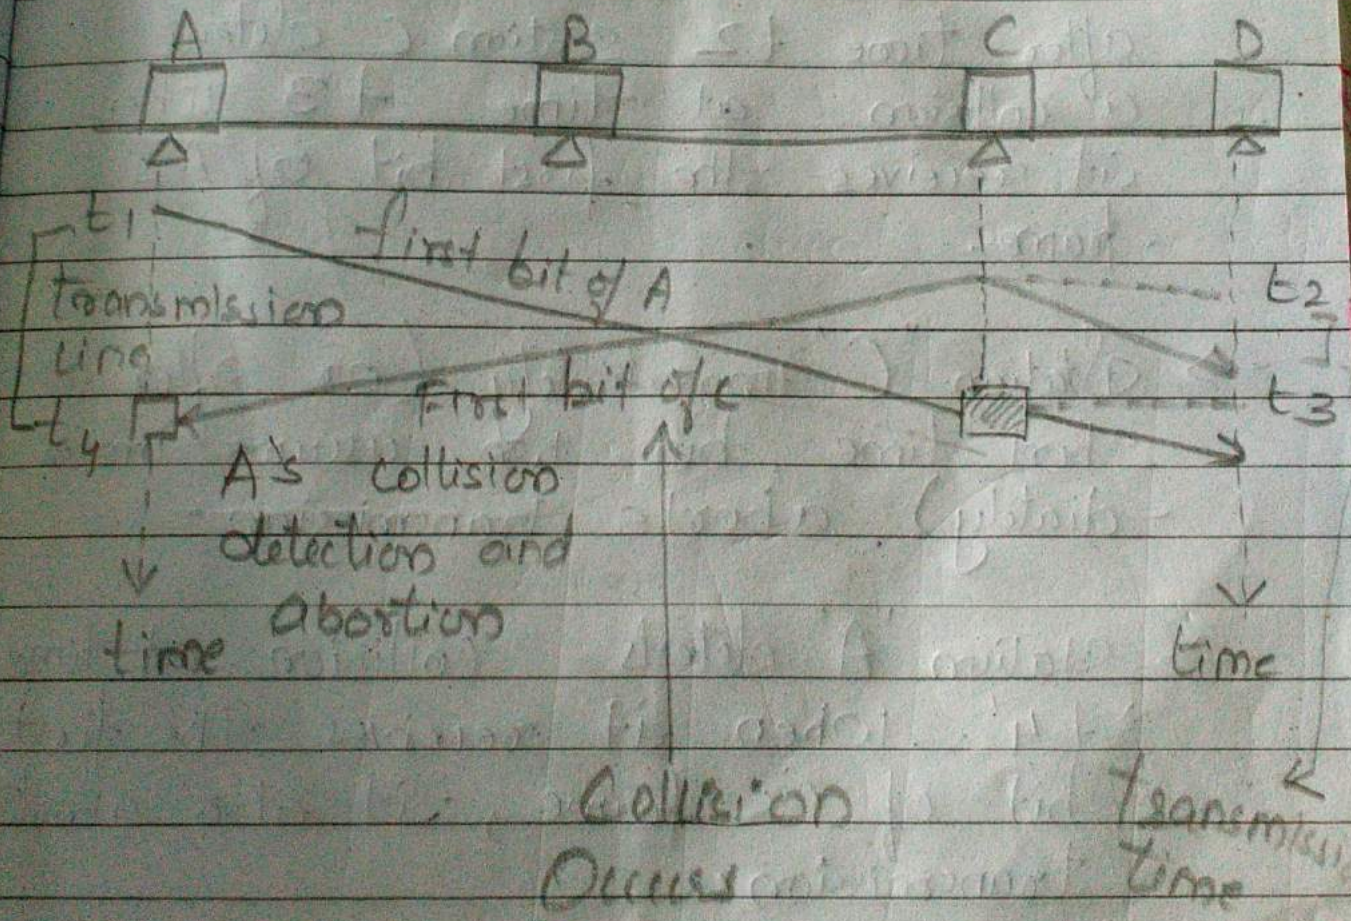 A B C D
t1
first bit of A
t2
transmission
line
First bit of C
t3
t4
A's collision
detection and
abortion
time
time
Collision
Occurs
transmissi
time